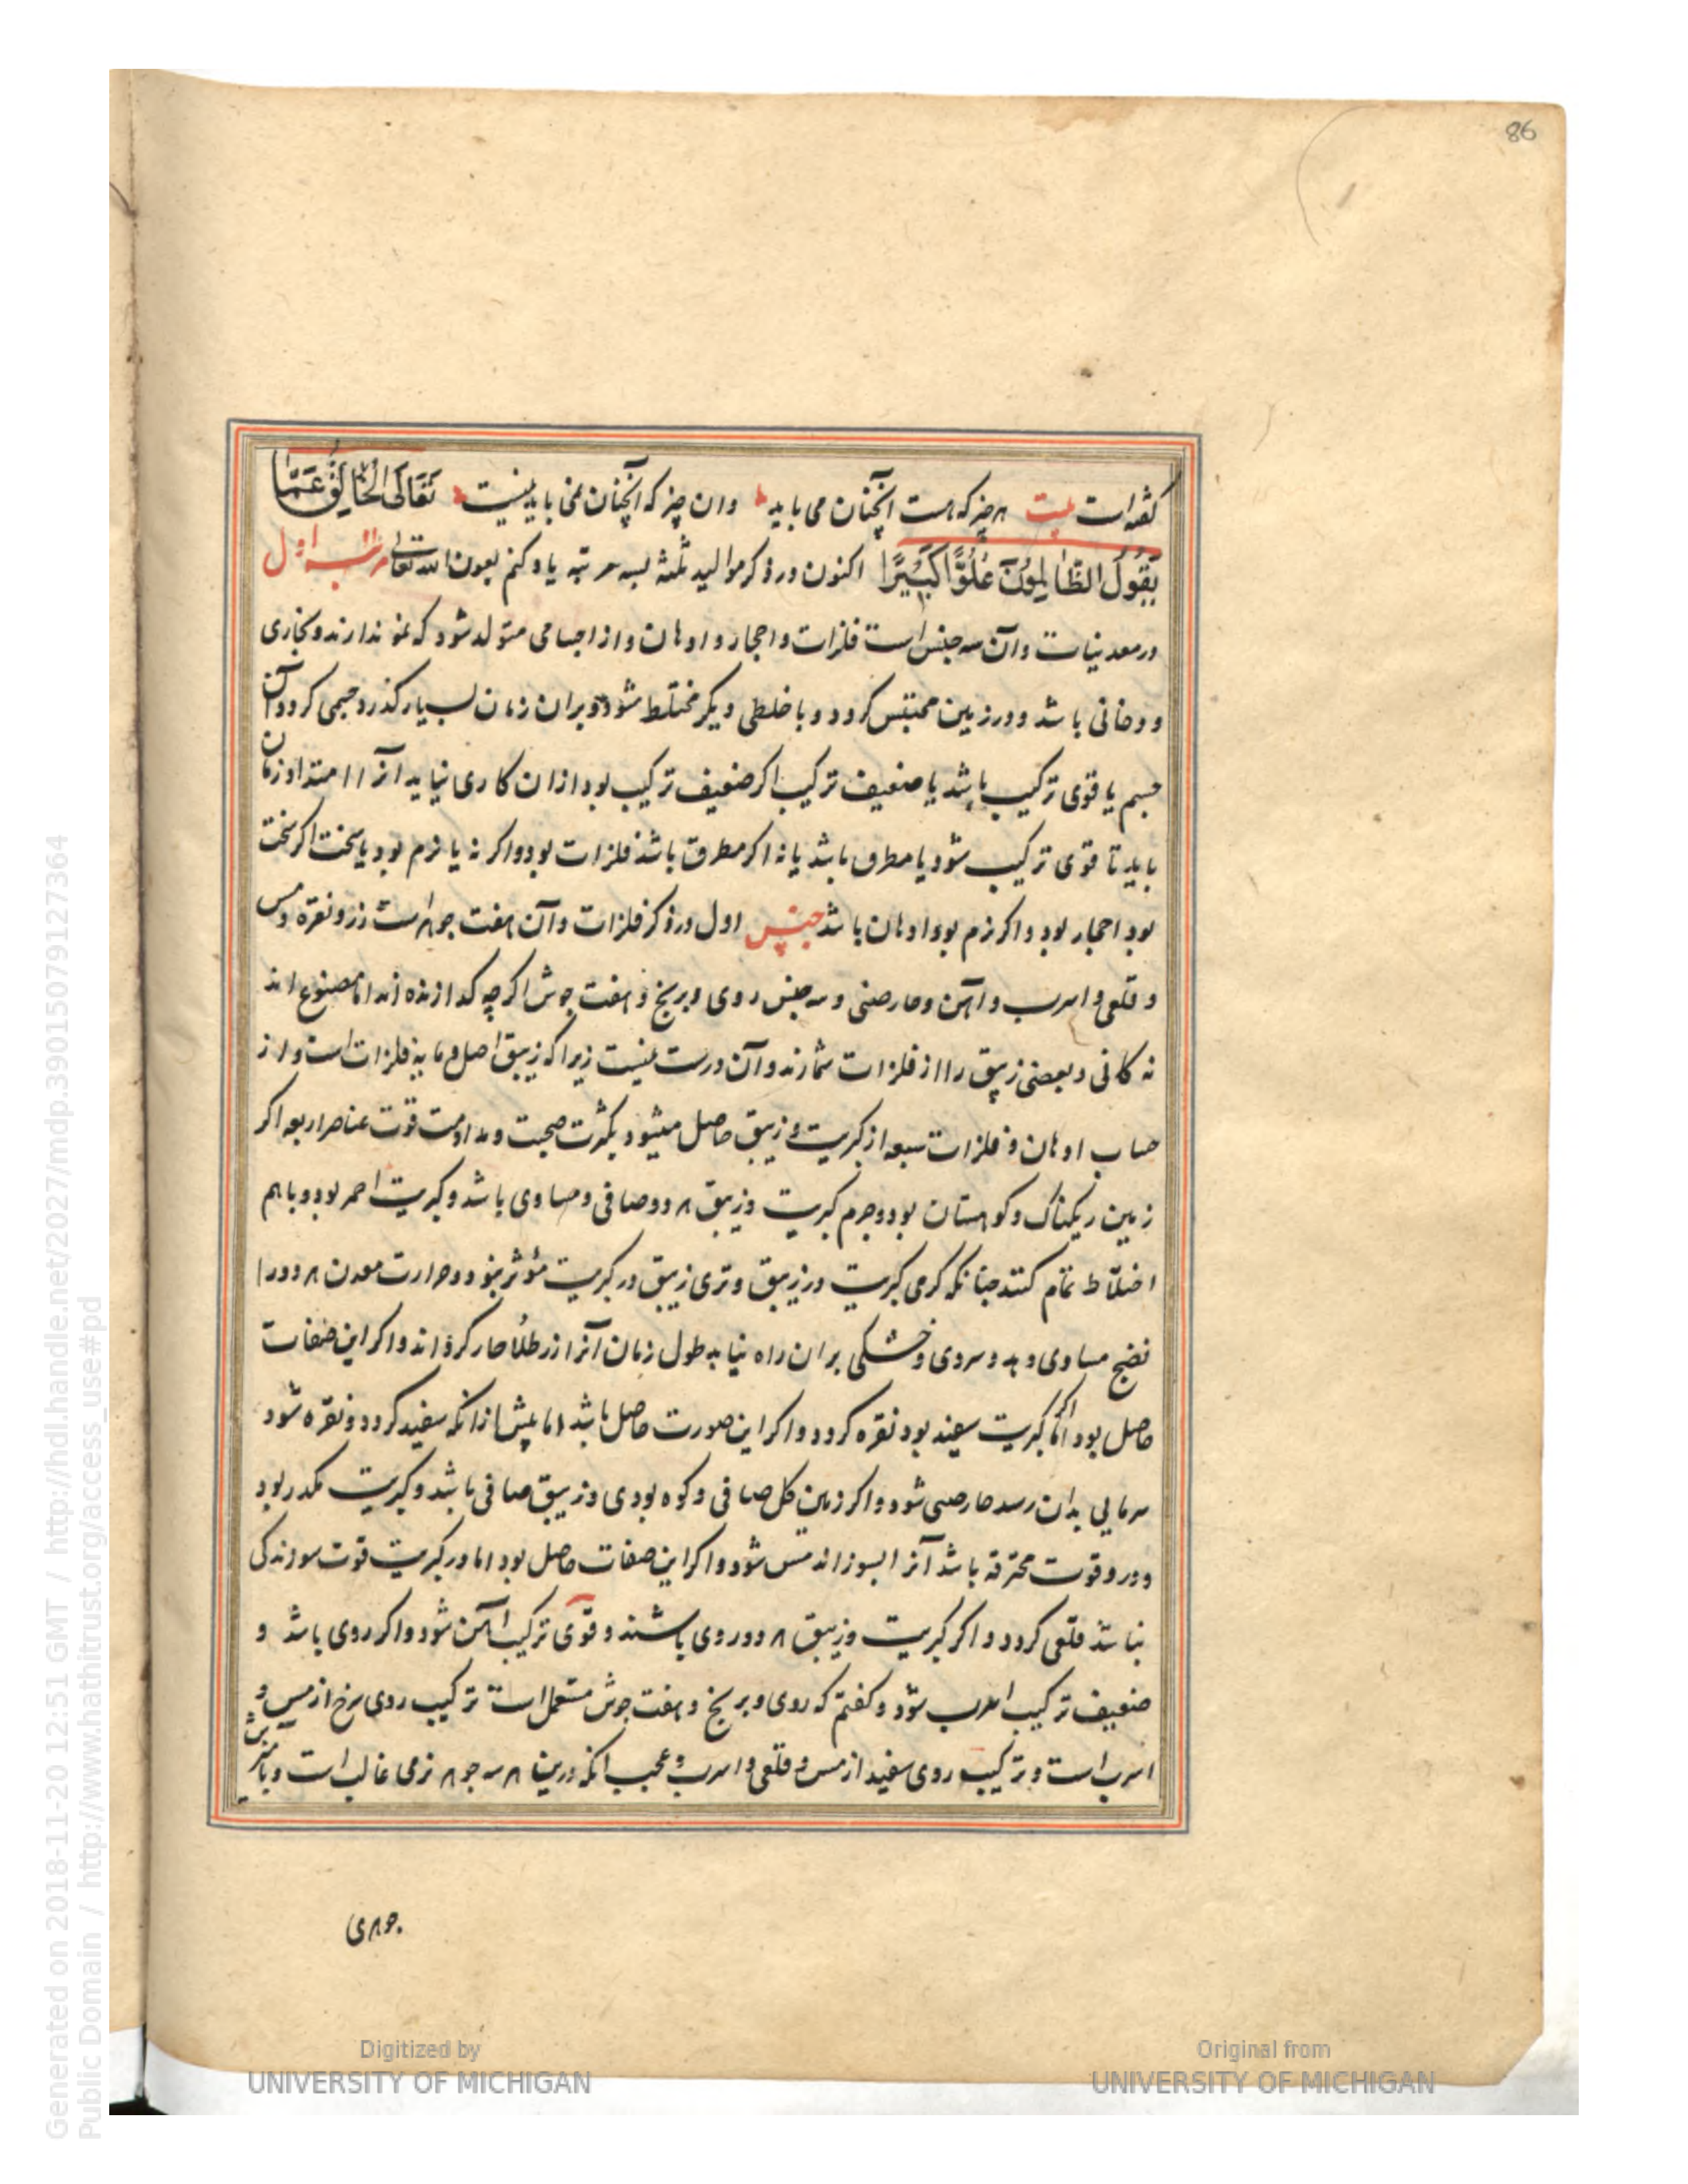 86
گفته‌است بیت هرچیز که هست آنچنان می‌باید وان چیز که آنچنان نمی‌باید نیست تَعَالَی الْخَالِقُ عَمَّا
یَقُولُ الظَّالِمُونَ عُلُوًّا کَبِیرًا اکنون در ذکر موالید ثلثه بسه مرتبه یاد کنم بعون الله تعالی مرتبه اول
در معدنیات وآن سه جنس است فلزات واحجار وادهان واز اجسامی متولد شود که نمو ندارند وبخاری
ودخانی باشد ودر زمین محتبس کردد وبا خلطی دیکر مختلط شود وبران زمان بسیار کذرد جسمی کردد وآن
جسم یا قوی ترکیب باشد یا ضعیف ترکیب اکر ضعیف ترکیب بود ازان کاری نیاید آنرا امتداد زمان
باید تا قوی ترکیب شود یا مطرق باشد یا نه اکر مطرق باشد فلزات بود واکر نه یا نرم بود یا سخت اکر سخت
بود احجار بود واکر نرم بود ادهان باشد جنس اول در ذکر فلزات وآن هفت جوهر است زر ونقره ومس
وقلعی واسرب وآهن وخارصنی وسه جنس روی وبرنج وهفت جوش اکرچه کدازنده‌اند اما مصنوع اند
نه کانی وبعضی زیبق را از فلزات شمارند وآن درست نیست زیرا که زیبق اصل ومایه فلزات است واز
حساب ادهان وفلزات سبعه از کبریت وزیبق حاصل میشود بکثرت صحبت ومداومت قوت عناصر اربعه اکر
زمین ریکناک وکوهستان بود وجرم کبریت وزیبق هر دو صافی ومساوی باشد وکبریت احمر بود وباهم
اختلاط تمام کنند چنانکه کرمی کبریت در زیبق وتری زیبق در کبریت مؤثر بود وحرارت معدن هر دو را
نضج مساوی دهد وسردی وخشکی بران راه نیابد طول زمان آنرا زر طلا کرداند واکر این صفات
حاصل بود اما کبریت سفید بود نقره کردد واکر این صورت حاصل باشد اما پیش ازانکه سفید کردد ونقره شود
سرمایی بدان رسد خارصنی شود واکر زمین کل صافی وکوه بودی وزیبق صافی باشد وکبریت مکدر بود
ودرو قوت محترقه باشد آنرا بسوزاند مس شود واکر این صفات حاصل بود اما در کبریت قوت سوزندکی
نباشد قلعی کردد واکر کبریت وزیبق هر دو ردی باشند وقوی ترکیب آهن شود واکر ردی باشد و
ضعیف ترکیب اسرب شود وکفتم که روی وبرنج وهفت جوش مستعمل است ترکیب روی سرخ از مس و
اسرب است وترکیب روی سفید از مس وقلعی واسرب وعجب انکه درین هر سه جوهر نرمی غالب است
جوهری
Digitized by
UNIVERSITY OF MICHIGAN
Original from
UNIVERSITY OF MICHIGAN
Generated on 2018-11-20 12:51 GMT / http://hdl.handle.net/2027/mdp.39015079127364
Public Domain / http://www.hathitrust.org/access_use#pd